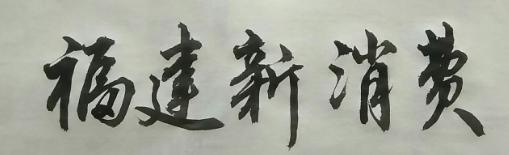 福建新消费